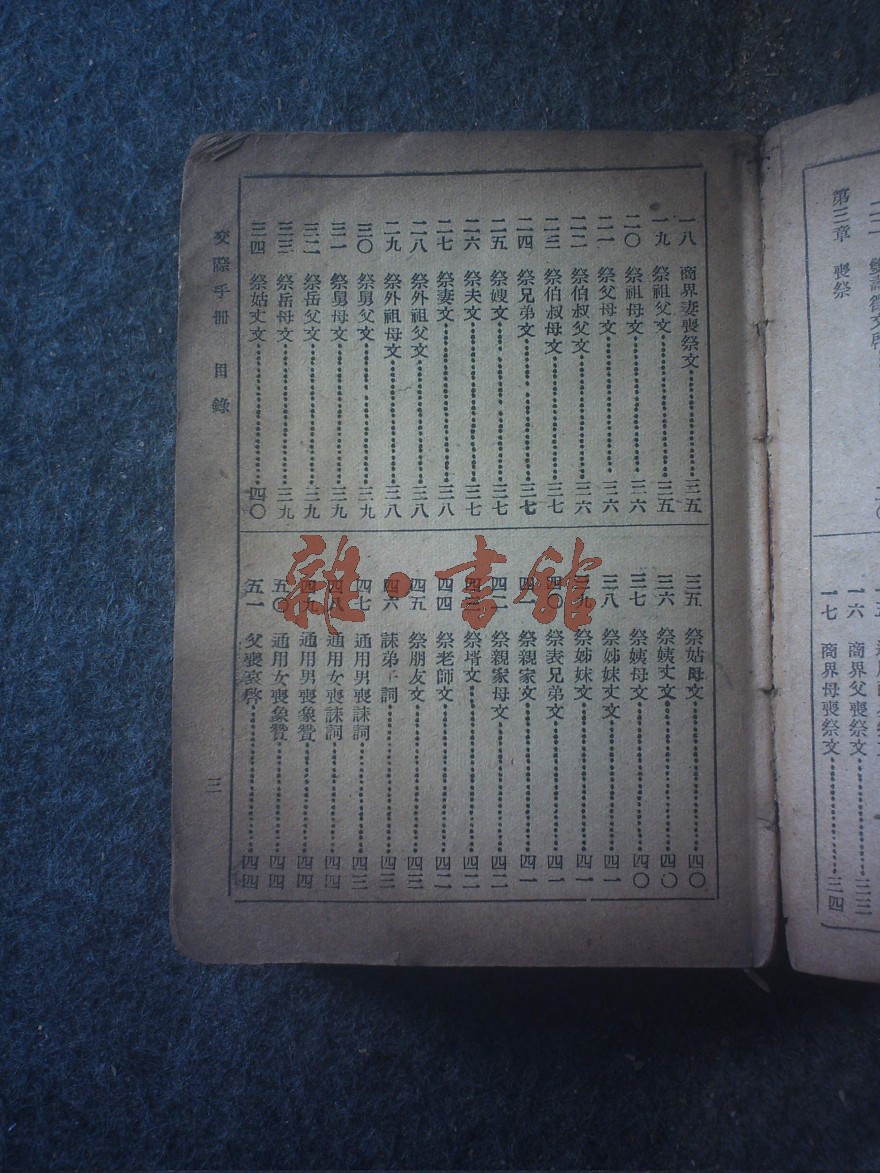 第三章 喪祭
一六 商界父喪祭文 三三
一七 商界母喪祭文 三四
一八 商界妻喪祭文 三五
一九 祭祖父文 三五
二〇 祭祖母文 三六
二一 祭父母文 三六
二二 祭伯叔父文 三六
二三 祭伯叔母文 三七
二四 祭兄弟文 三七
二五 祭嫂文 三七
二六 祭夫文 三七
二七 祭妻文 三八
二八 祭外祖父文 三八
二九 祭外祖母文 三八
三〇 祭舅父文 三九
三一 祭舅母文 三九
三二 祭岳父文 三九
三三 祭岳母文 三九
三四 祭姑丈文 四〇
三五 祭姑母文 四〇
三六 祭姨丈文 四〇
三七 祭姨母文 四〇
三八 祭姊妹丈文 四一
三九 祭姊妹文 四一
四〇 祭表兄弟文 四一
四一 祭親家文 四一
四二 祭親家母文 四二
四三 祭壻文 四二
四四 祭老師文 四二
四五 祭朋友文 四三
四六 誄弟子詞 四三
四七 通用男喪誄詞 四三
四八 通用女喪誄詞 四四
四九 通用男喪象贊 四四
五〇 通用女喪象贊 四四
五一 父喪哀啓 四四
交際手冊 目錄 三
雜·書館